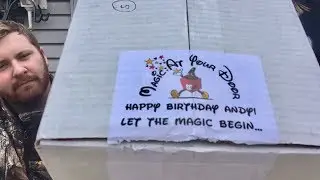 Magic At Your Door
HAPPY BIRTHDAY ANDY!
LET THE MAGIC BEGIN...